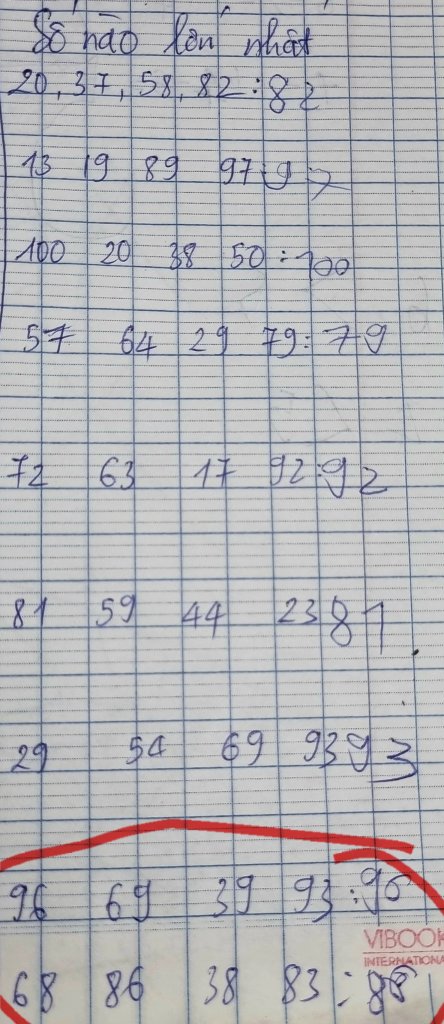 Số nào lớn nhất
20, 37, 58, 82 : 82
13 19 89 97 : 97
100 20 38 50 : 100
57 64 29 79 : 79
72 63 17 92 : 92
81 59 44 23 81
29 54 69 93 93
96 69 39 93 : 96
VIBOOK
INTERNATIONA
68 86 38 83 :